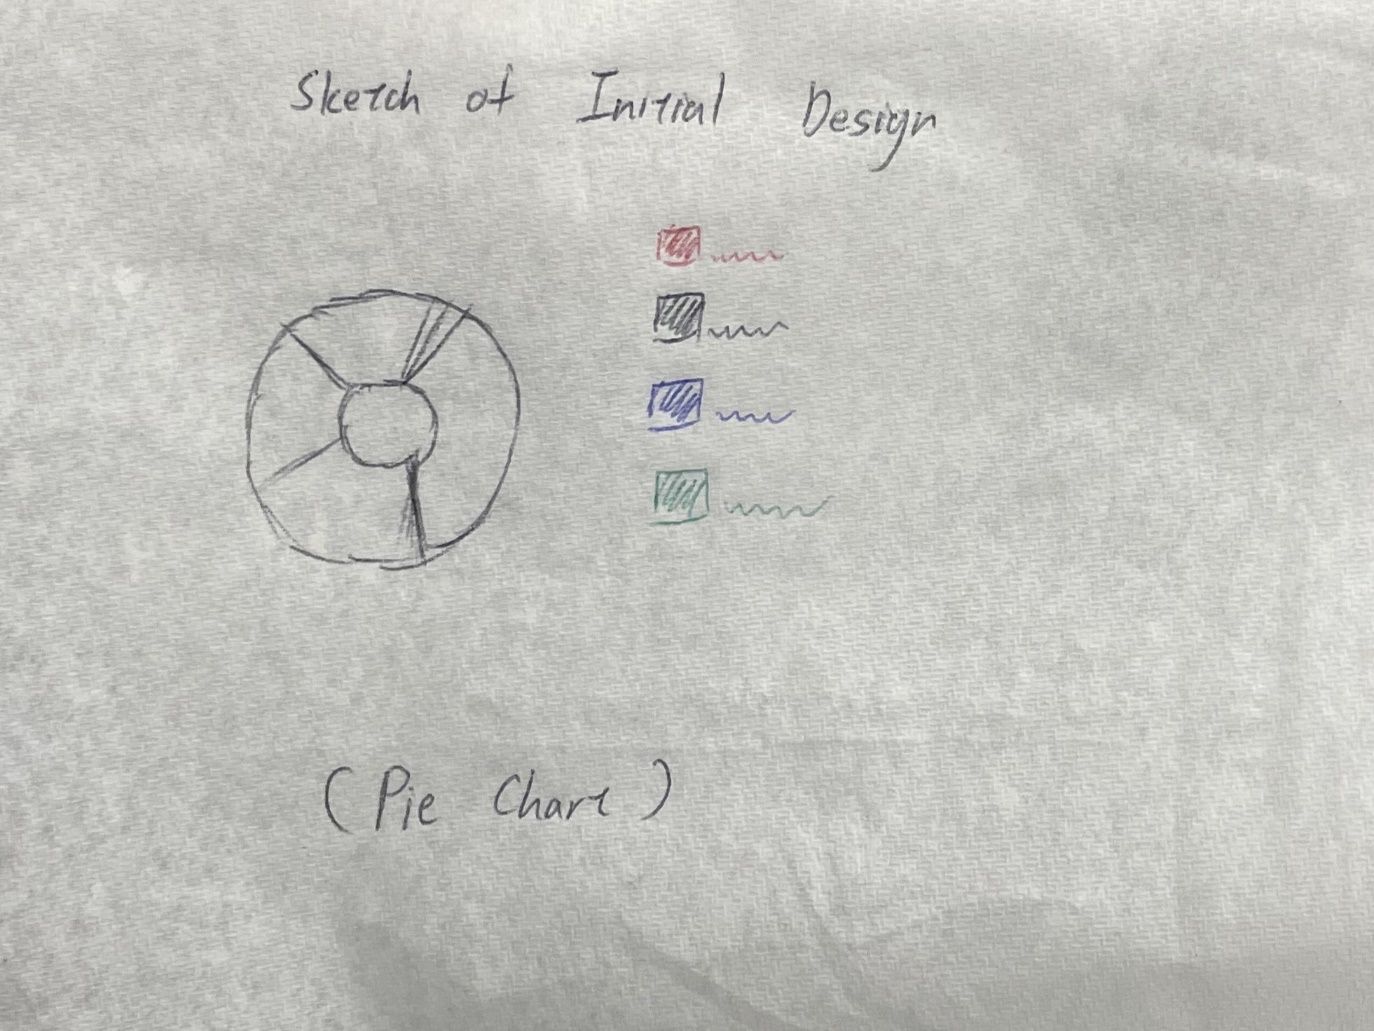 Sketch of Initial Design
(Pie Chart)